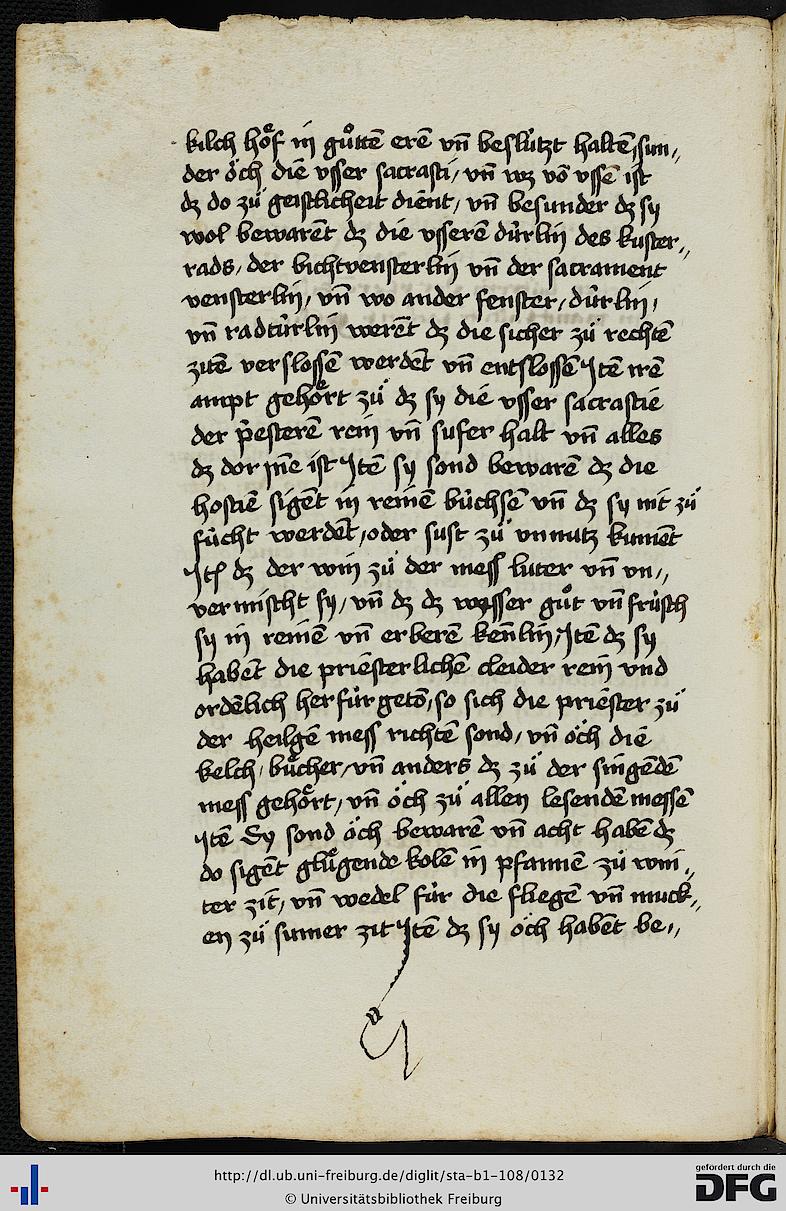 kilch hoͤf in guͦttē erē vn̄ beslu̍tzt haltē, sun„
der öch die vsser sacrasti, vn̄ wz vō vssē ist
dz do zuͦ geistlicheit diēnt, vn̄ besunder dz sy
wol bewarēt dz die vsserē du̍rlin des kuster„
rads, der bichtvensterlin vn̄ der sacrament
vensterlin, vn̄ wo ander fenster, du̍rlin,
vn̄ radtu̍rlin werēt dz die sicher zuͦ rechtē
zitē verslossē werdēt vn̄ entslossē Itē irē
ampt gehoͤrt zuͦ dz sy die vsser sacrastie
der p̄esterē rein vn̄ sufer halt vn̄ alles
dz dor jn̄e ist Itē sy sond bewarē dz die
hostiē sigēt in reinē bu̍chsē vn̄ dz sy nit zuͦ
fu̍cht werdēt, oder sust zuͦ vnnutz kumēt
Itē dz der win zuͦ der mess luter vn̄ vn„
vermischt sy, vn̄ dz dz wasser guͦt vn̄ fru̍sch
sy in reinē vn̄ erberē ken̄lin, Itē dz sy
habēt die priesterlichē cleider rein vnd
ordēlich herfu̍r getō, so sich die priester zuͦ
der heilgē mess richtē sond, vn̄ öch die
kelch, buͤcher, vn̄ anders dz zuͦ der singēdē
mess gehoͤrt, vn̄ öch zuͦ allen lesendē messē
Itē Sy sond öch bewarē vn̄ acht habē dz
do sigēt gluͤgende kolē in pfannē zuͦ win„
ter zit, vn̄ wedel fu̍r die fliegē vn̄ muck„
en zuͦ sumer zit Itē dz sy öch habēt be„
http://dl.ub.uni-freiburg.de/diglit/sta-b1-108/0132
© Universitätsbibliothek Freiburg
gefördert durch die
DFG